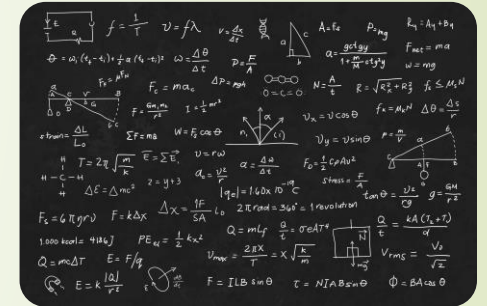 E
R
f = 1/T
v = fλ
v = Δx/Δt
a
b
c
A = Fs
P = mg
R_y = A_y + B_y
θ = ω₁(t₂ - t₁) + ½α(t₂ - t₁)²
ω = Δθ/Δt
P = F/A
F_net = ma
w = mg
F_c = ma_c
ΔP = ρgh
O=C=O
N = A/t
R = √R_x² + R_y²
f_s ≤ μ_s N
F = Gm₁m₂/r²
I = ½mr²
v_x = v cosθ
f_k = μ_k N
Δθ = Δs/r
strain = ΔL/L₀
ΣF = ma
W = F_s cosθ
v_y = v sinθ
ρ = m/V
T = 2π√m/k
E = ΣE_i
v = rω
α = Δω/Δt
F_D = ½CρAv²
H
H - C - H
H
ΔE = Δmc²
z = y + 3
a_c = v²/r
|q_e| = 1.60 x 10⁻¹⁹ C
stress = F/A
tanθ = v²/rg
g = GM/r²
F_s = 6πηrv
F = kΔx
Δx = 1F/SA L₀
2π rad = 360° = 1 revolution
Q = mL_f
Q/t = σeAT⁴
N
mg
1.000 kcal = 4186J
PE_el = ½kx²
v_max = 2πX/T = x√k/m
Q = mcΔT
E = F/q
E = k|Q|/r²
F = ILB sinθ
τ = NIAB sinθ
Φ = BA cosθ